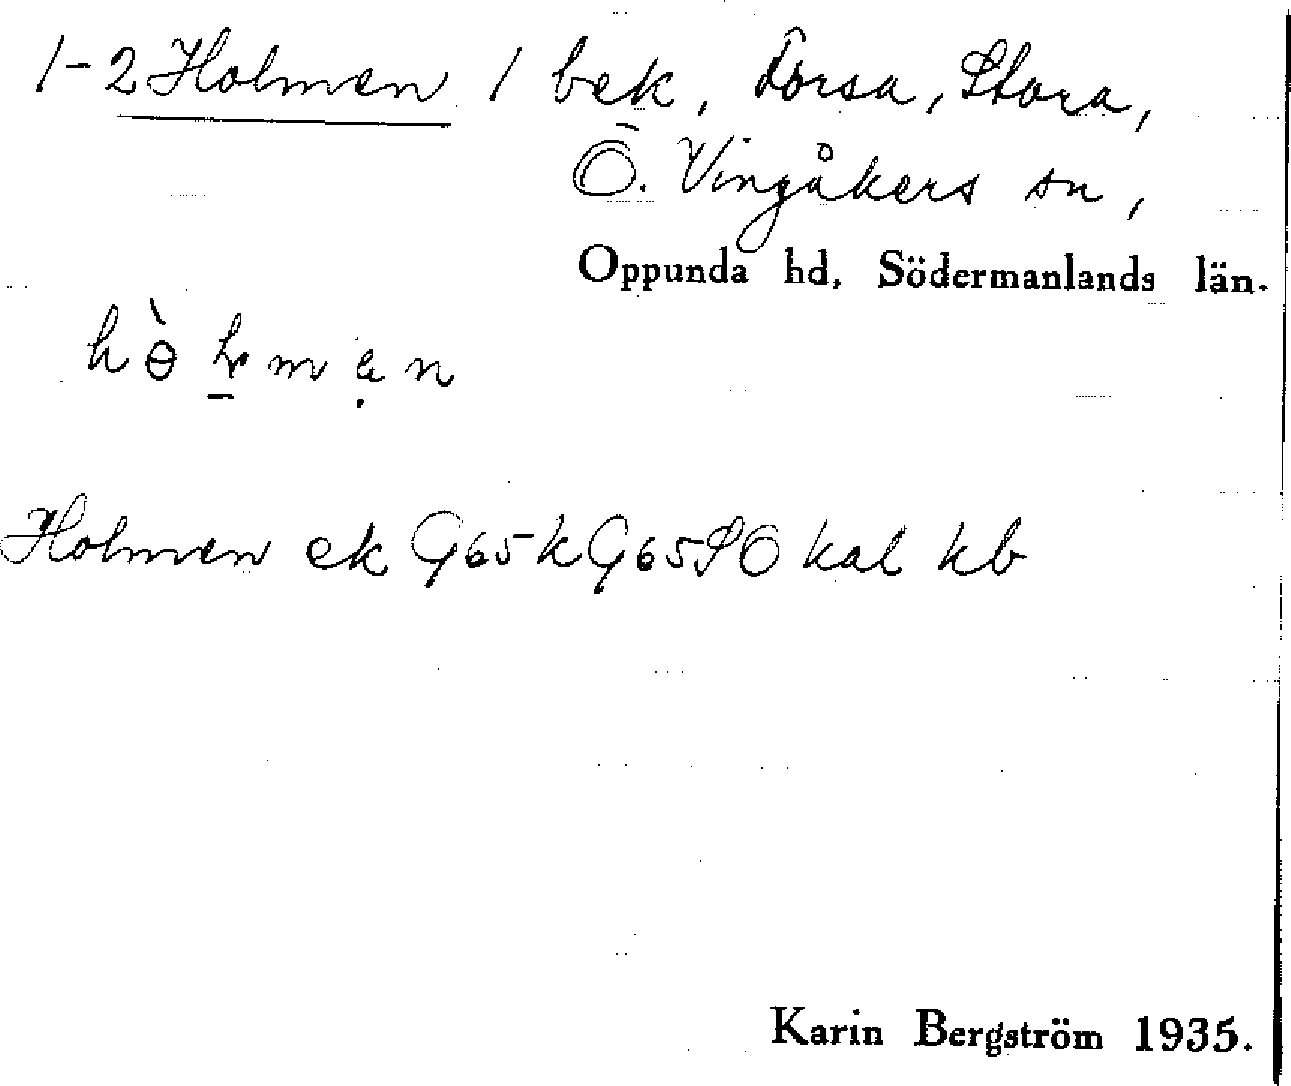 1-2 Holmen 1 bek, Forsa, Stora,
Ö. Vingåkers sn,
Oppunda hd, Södermanlands län.
hɵ̀ḻmạn
Holmen ek G65k G65SO kal kb
Karin Bergström 1935.